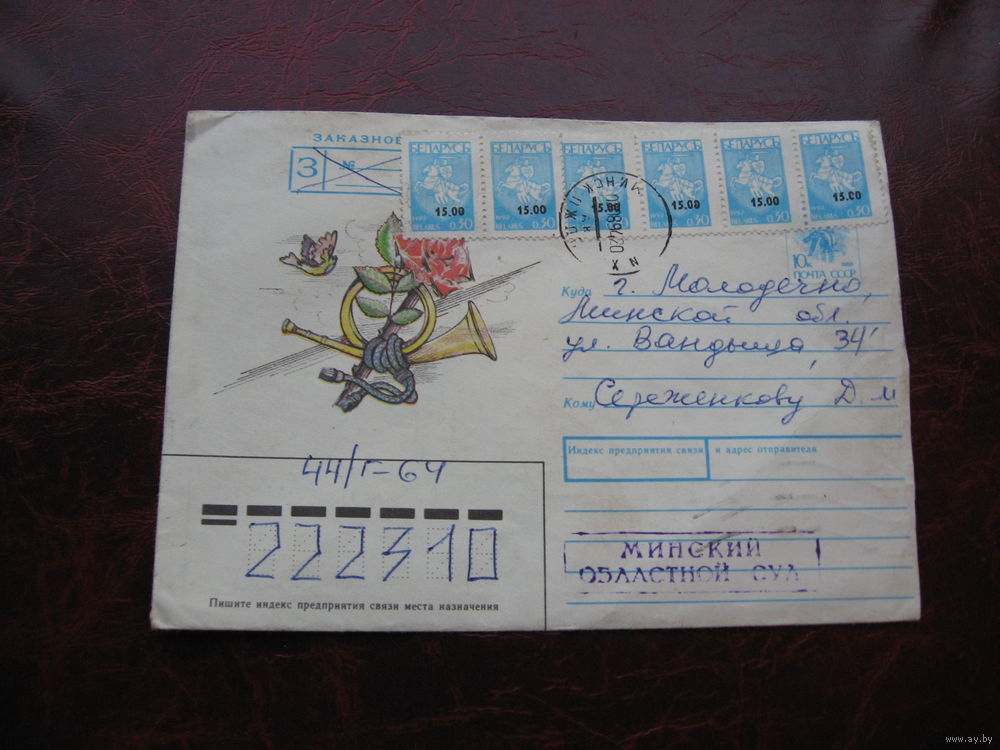 ЗАКАЗНОЕ
З №
БЕЛАРУСЬ БЕЛАРУСЬ БЕЛАРУСЬ БЕЛАРУСЬ БЕЛАРУСЬ БЕЛАРУСЬ
15.00 15.00 15.00 15.00 15.00 15.00
1992 BELARUS 0,30 1992 BELARUS 0,30 0,30 1992 BELARUS 0,30 1992 BELARUS 0,30
МИНСК
10к
ПОЧТА СССР
Куда г. Молодечно,
Минской обл.
ул. 34
Кому Сереженкову Д. М
Индекс предприятия связи и адрес отправителя
44/Г-64
222310
Пишите индекс предприятия связи места назначения
МИНСКИЙ
ОБЛАСТНОЙ СУД
www.ay.by